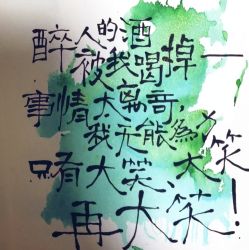 醉人的酒
被我喝掉—
事情太离奇，
我无能為力
只有大笑、大笑
再大笑！